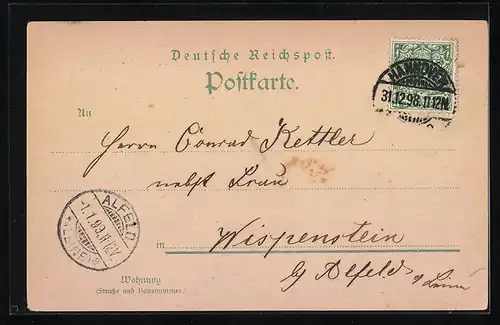 Deutsche Reichspost.
Postkarte.
HANNOVER
31.12.98.11-12N.
An
Herrn Conrad Kettler
nebst Frau
ALFELD
1.1.99. 11-12V.
(LEINE)
in Wispenstein
Wohnung
(Straße und Hausnummer.)
b/ Alfeld a/ Leine